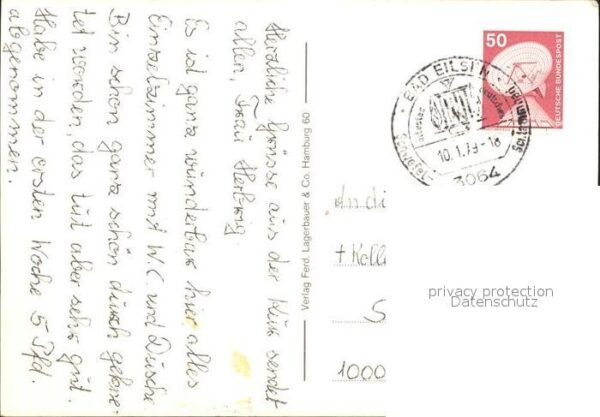 Herzliche Grüsse aus der Kur sendet
allen, Frau Herbrig
Es ist ganz wunderbar hier alles
Einzelzimmer mit W.C. und Dusche
Bin schon ganz schön durch gekne-
tet worden, das tut aber sehr gut.
Habe in der ersten Woche 5 Pfd.
abgenommen.
Verlag Ferd. Lagerbauer & Co. Hamburg 60
50
DEUTSCHE BUNDESPOST
BAD EILSEN
10.1.79-18
3064
An di
+ Koll
S
1000
privacy protection
Datenschutz